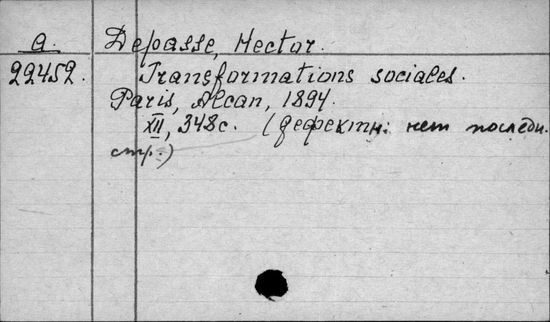 a. Depasse, Hector.
22452. Transformations sociales.
Paris, Alcan, 1894.
XII, 348с. (дефектн: нет последн.
стр.)